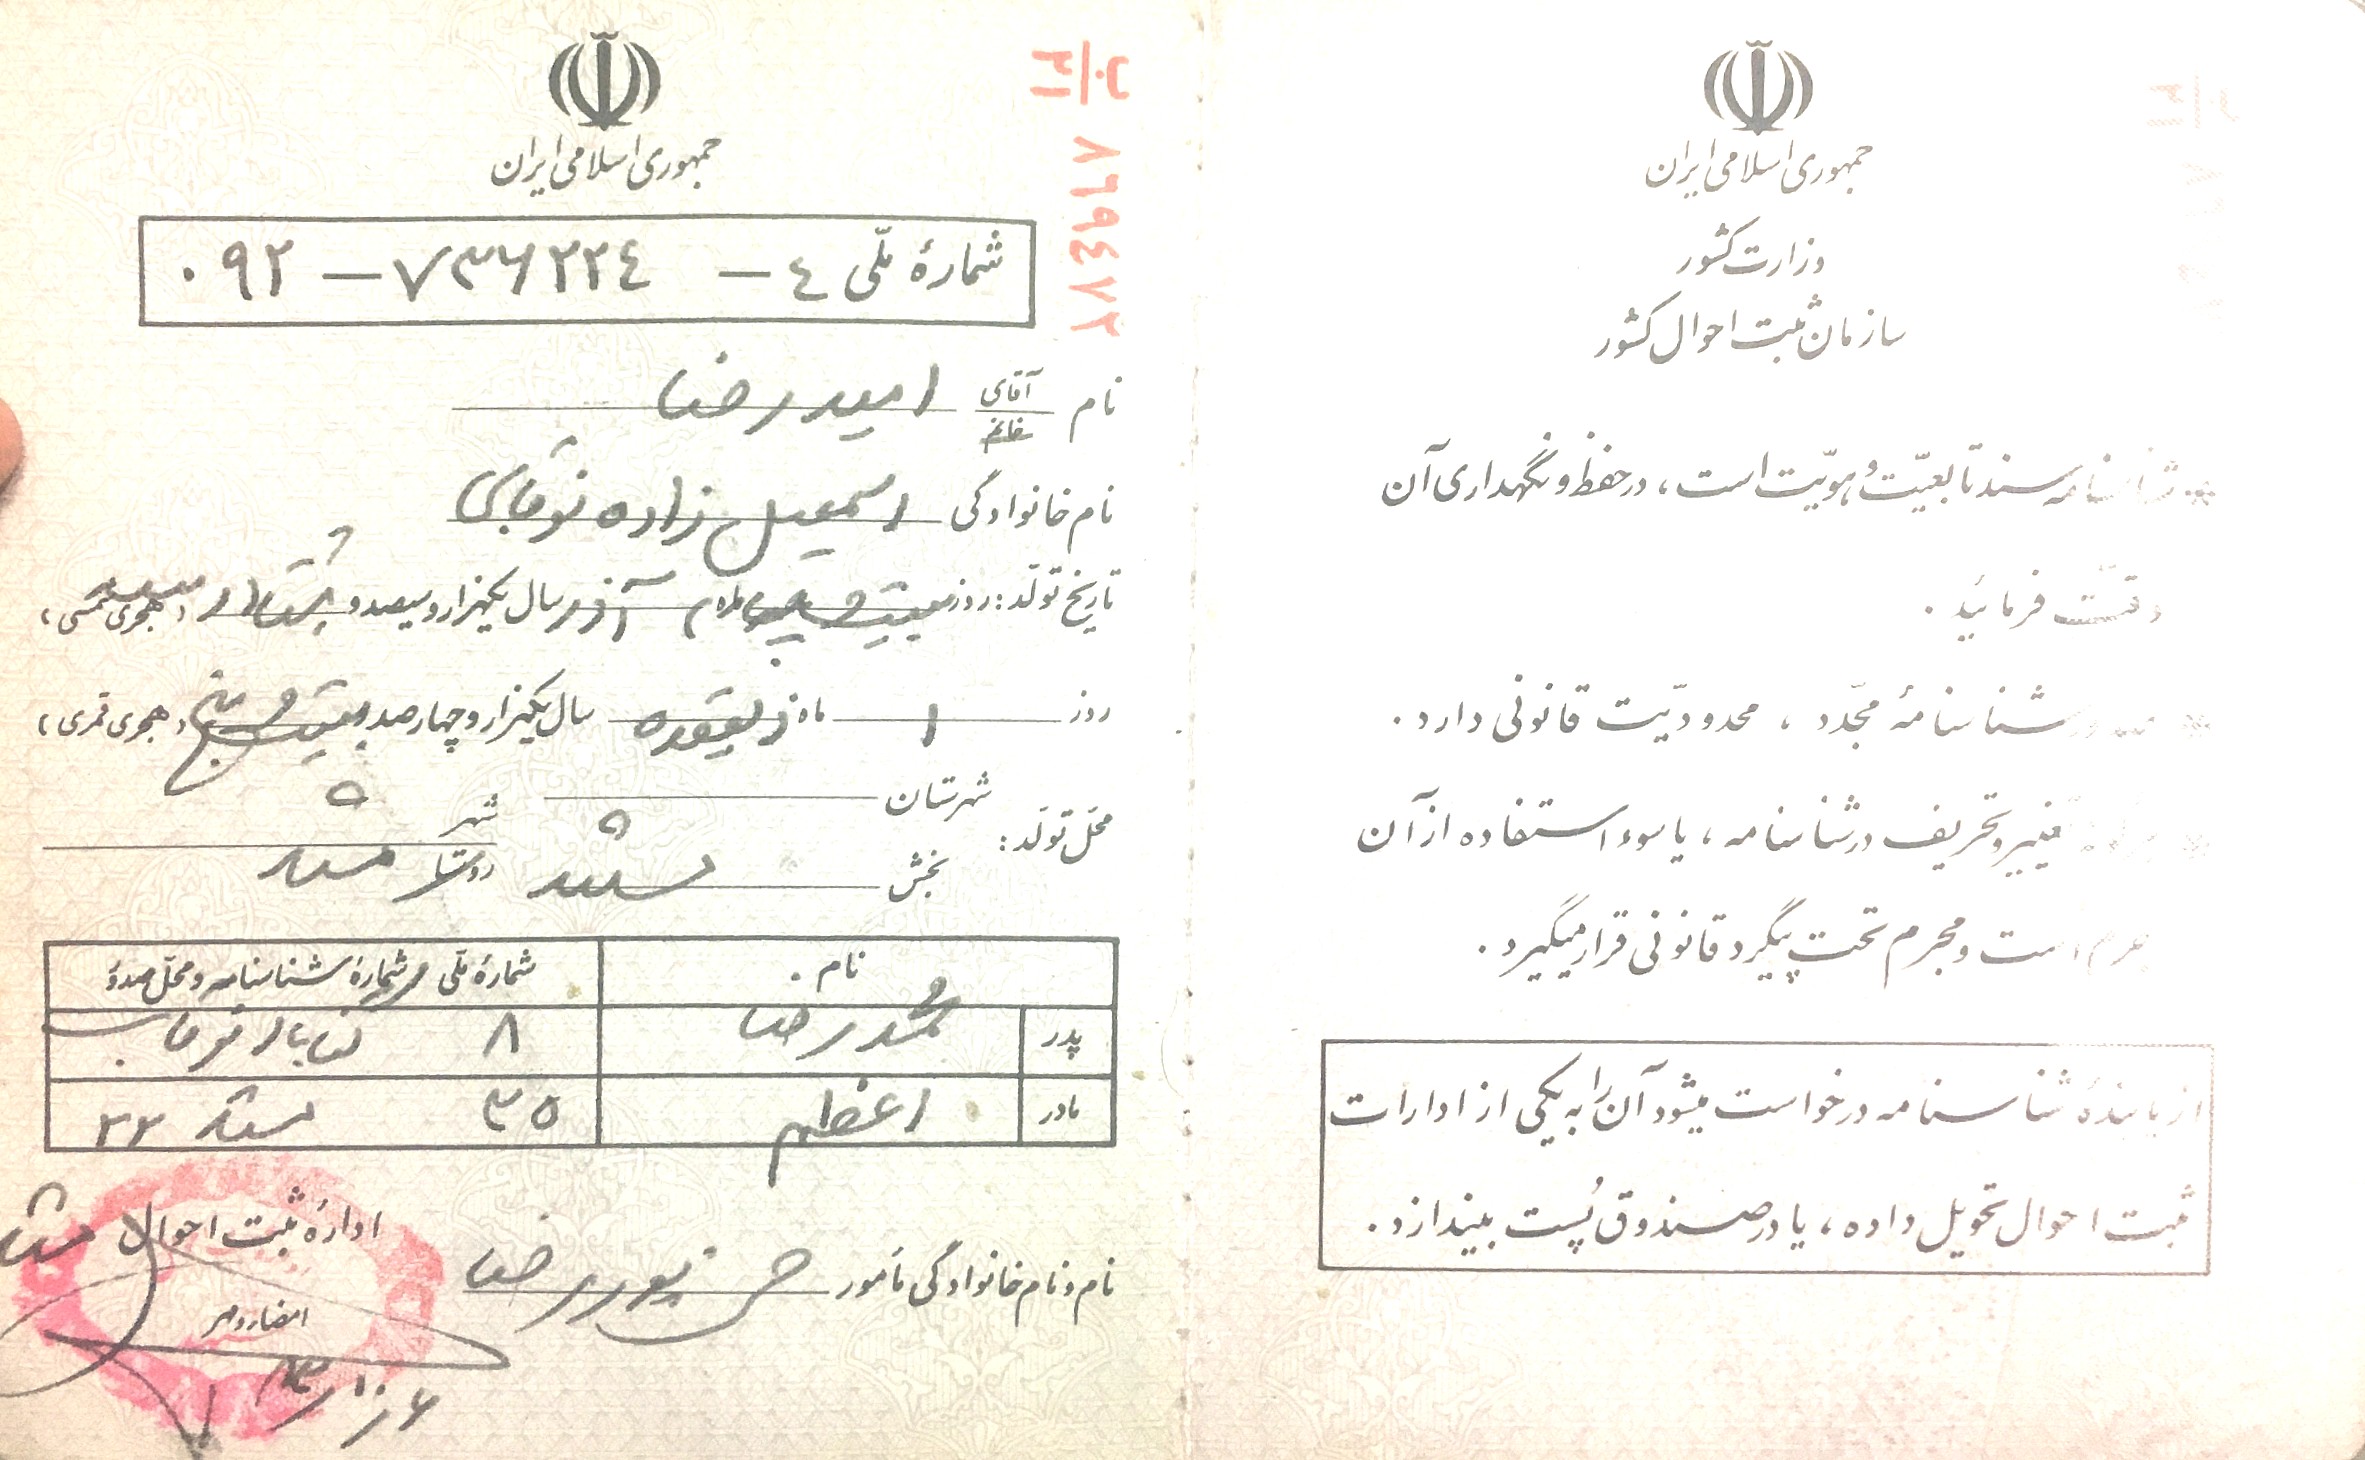 جمهوری اسلامی ایران
وزارت کشور
سازمان ثبت احوال کشور
* شناسنامه سند تابعیّت و هویّت است، در حفظ و نگهداری آن
دقّت فرمائید.
شناسنامهٔ مجّدد، محدودیّت قانونی دارد.
تغییر و تحریف در شناسنامه، یا سوء استفاده از آن
جرم است و مجرم تحت پیگرد قانونی قرار میگیرد.
از یابندهٔ شناسنامه درخواست میشود آن را به یکی از ادارات
ثبت احوال تحویل داده، یا در صندوق پُست بیندازد.
جمهوری اسلامی ایران
شمارهٔ ملّی ٤ - ٧٣٦٢٢٤ - ٠٩٢
ب/٣١ ٨٦٩٤٧٢
نام آقای خانم امیدرضا
نام خانوادگی اسمعیل زاده نوقابی
تاریخ تولّد: روز بیست و پنجم ماه آذر سال یکهزار و سیصد و (هجری شمسی)
روز ١ ماه ذیقعده سال یکهزار و چهارصد بیست و پنج (هجری قمری)
محلّ تولّد: شهرستان شهر
بخش مشهد روستا مشهد
نام شمارهٔ ملّی و شمارهٔ شناسنامه و محلّ صدور
پدر محمدرضا ٨ گناباد نوقاب
مادر اعظم ٣٥ مشهد ٢٢
نام و نام خانوادگی مأمور حسن پوررضا
ادارهٔ ثبت احوال مشهد
امضاء و مهر